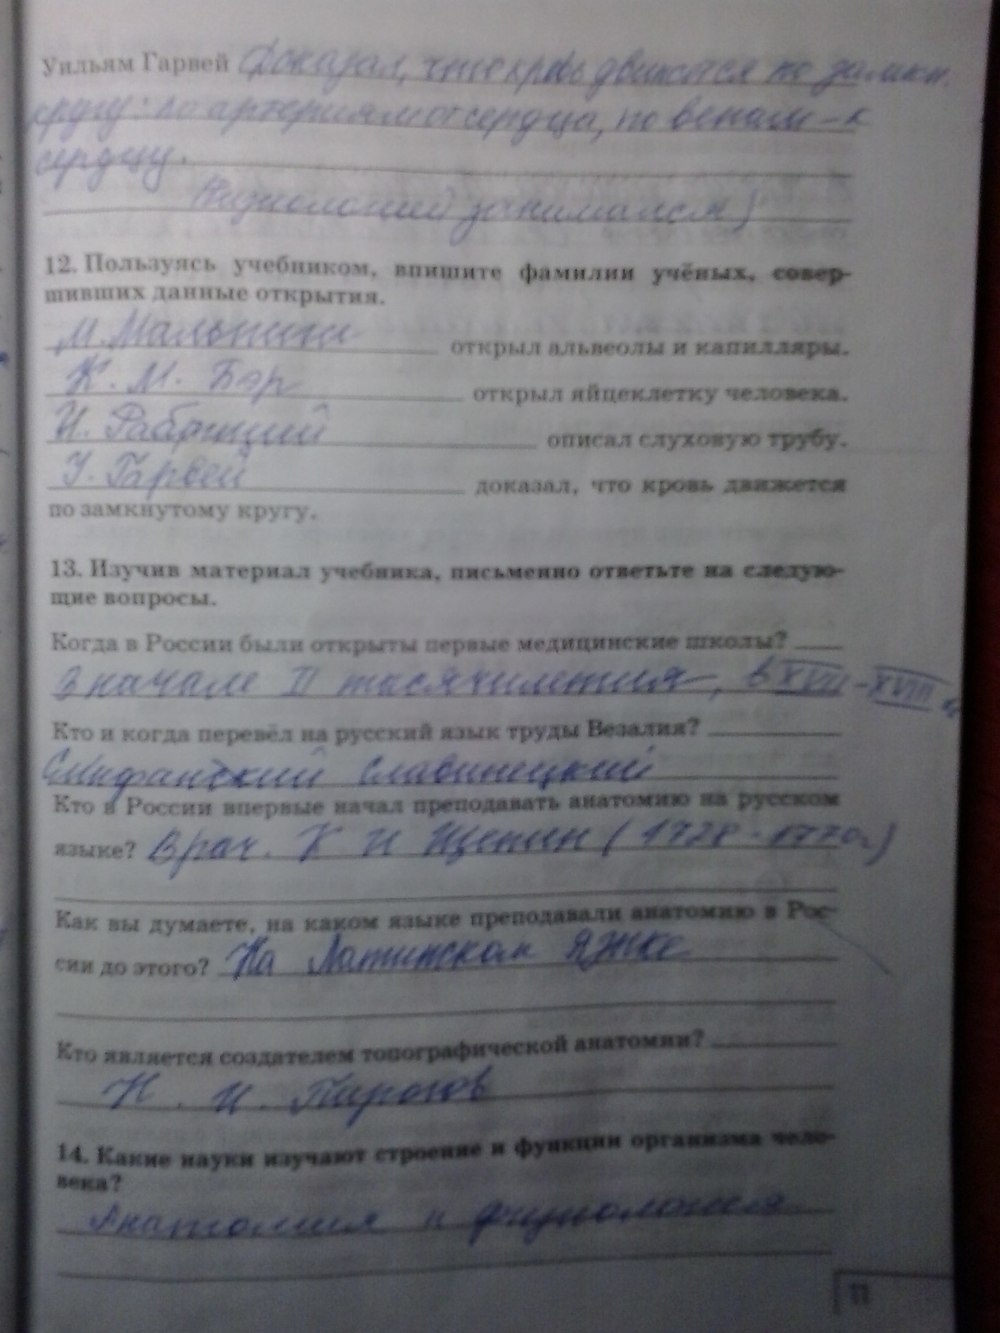 Уильям Гарвей Доказал, что кровь движется по замкн.
кругу: по артериям от сердца, по венам – к
сердцу.
(Физиологией занимался)
12. Пользуясь учебником, впишите фамилии учёных, совер-
шивших данные открытия.
М. Мальпиги открыл альвеолы и капилляры.
К. М. Бэр открыл яйцеклетку человека.
И. Фабриций описал слуховую трубу.
У. Гарвей доказал, что кровь движется
по замкнутому кругу.
13. Изучив материал учебника, письменно ответьте на следую-
щие вопросы.
Когда в России были открыты первые медицинские школы?
В начале II тысячилетия, в XVII-XVIII в
Кто и когда перевёл на русский язык труды Везалия?
Славинецкий
Кто в России впервые начал преподавать анатомию на русском
языке? Врач. К И Щепин (1728-1770г)
Как вы думаете, на каком языке преподавали анатомию в Рос-
сии до этого? На Латинском языке
Кто является создателем топографической анатомии?
Н. И. Пирогов
14. Какие науки изучают строение и функции организма чело-
века?
Анатомия и физиология
11